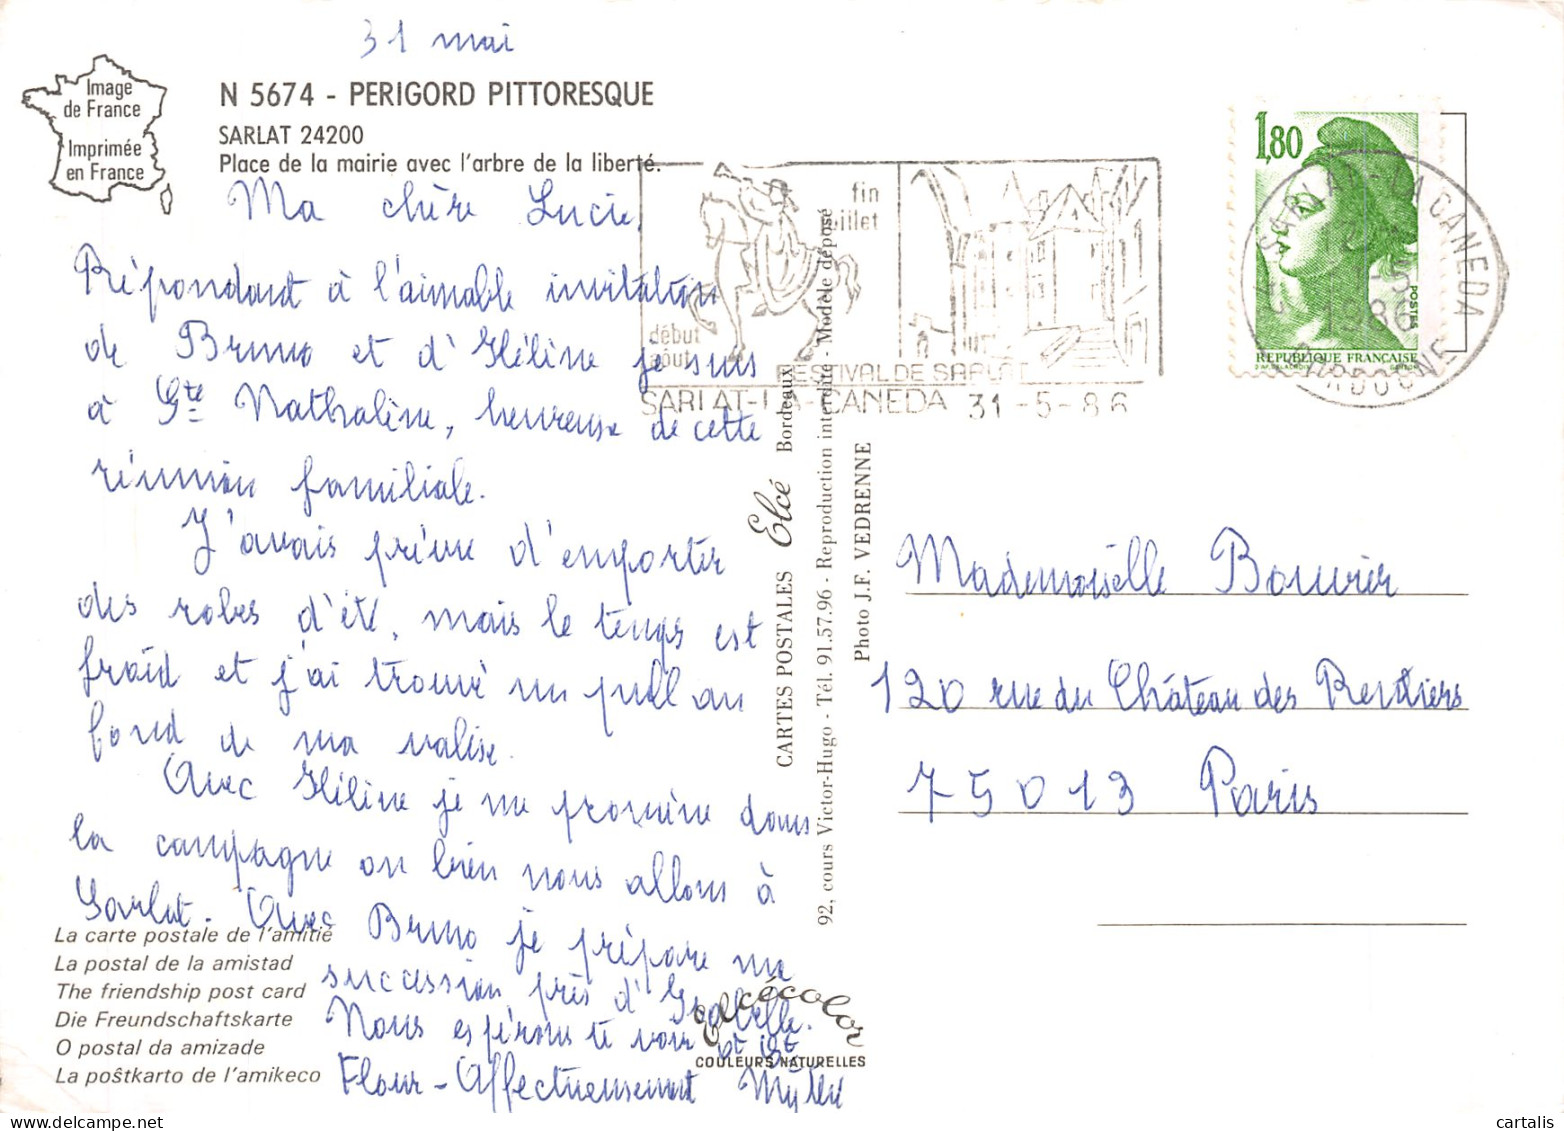 31 mai
Image
de France
Imprimée
en France
N 5674 - PERIGORD PITTORESQUE
SARLAT 24200
Place de la mairie avec l'arbre de la liberté.
Ma chère Lucie,
Répondant à l'aimable invitation
de Bruno et d'Hélène je suis
à Ste Nathalène, heureuse de cette
réunion familiale.
J'avais prévu d'emporter
des robes d'été, mais le temps est
froid et j'ai trouvé un pull au
fond de ma valise.
Avec Hélène je me promène dans
la campagne ou bien nous allons à
Sarlat. Avec Bruno je prépare ma
succession près d'
Nous espérons te voir
Flour - Affectueusement
La carte postale de l'amitié
La postal de la amistad
The friendship post card
Die Freundschaftskarte
O postal da amizade
La poŝtkarto de l'amikeco
fin
juillet
début
août
FESTIVAL DE SARLAT
SARLAT-LA-CANEDA 31-5-86
CARTES POSTALES Elcé Bordeaux
92, cours Victor-Hugo - Tél. 91.57.96 - Reproduction interdite - Modèle déposé
Photo J.F. VEDRENNE
Elcécolor
COULEURS NATURELLES
1,80
POSTES
REPUBLIQUE FRANÇAISE
D'AP. DELACROIX GANDON
SARLAT-LA CANEDA
1986
DORDOGNE
Mademoiselle Bouvier
120 rue du Château des Rentiers
75013 Paris
cartalis
www.delcampe.net